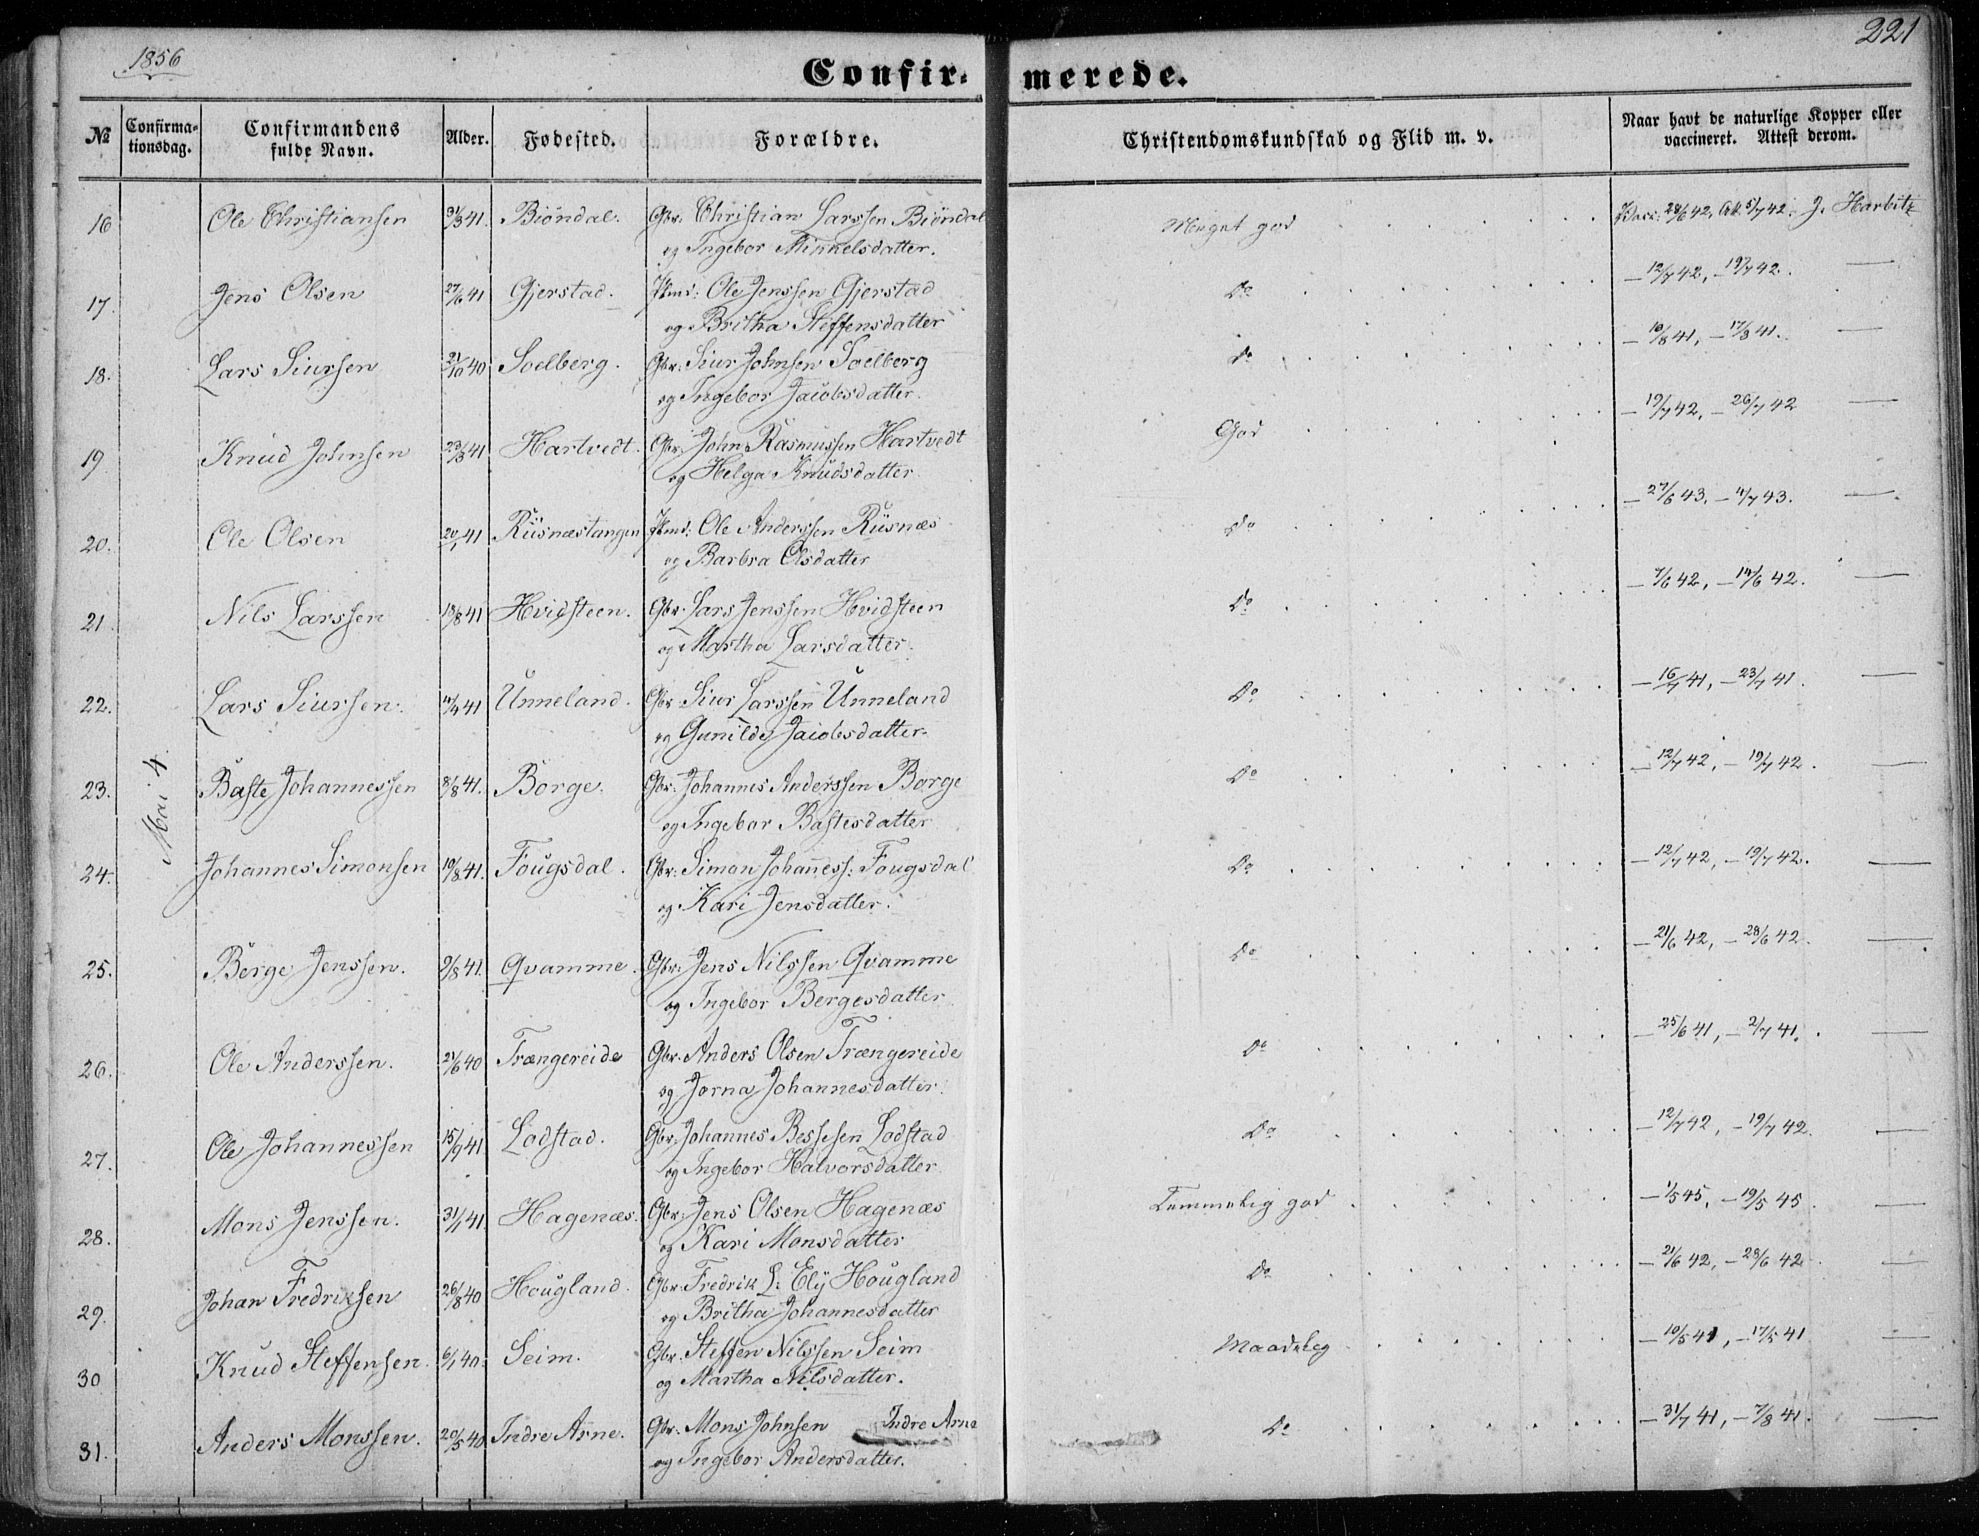 1856
221
Confirmerede.
№ Confirmationsdag. Confirmandens fulde Navn. Alder. Fødested. Forældre. Christendomskundskab og Flid m. v. Naar havt de naturlige Kopper eller vaccineret. Attest derom.
Mai 4
16 Ole Christiansen 31/3 41. Biöndal. Gbr: Christian Larssen Biöndal Meget god Vacc: 28/6 42, Att. 5/7 42. J. Harbitz
og Ingebor Minkelsdatter.
17. Jens Olsen 27/6 41 Gjerstad. Hmd: Ole Jenssen Gjerstad Do – 12/7 42, – 19/7 42. —
og Britha Steffensdatter
18. Lars Siursen 21/10 40 Soelberg. Gbr: Siur Johnsen Soelberg Do – 10/8 41, – 17/8 41. —
og Ingebor Jacobsdatter.
19 Knud Johnsen 23/3 41 Hartvedt. Gbr: John Rasmussen Hartvedt God – 19/7 42, – 26/7 42 —
og Helga Knudsdatter
20. Ole Olsen 20/1 41 Riisnæstangen Hmd: Ole Anderssen Riisnæs Do – 27/6 43, – 4/7 43. —
og Barbra Olsdatter
21. Nils Larssen 18/8 41 Hvidsteen. Gbr: Lars Jenssen Hvidsteen Do – 7/6 42, – 14/6 42. —
og Martha Larsdatter.
22. Lars Siursen. 14/4 41 Unneland. Gbr: Siur Larssen Unneland Do – 16/7 41, – 23/7 41. —
og Gunilde Jacobsdatter.
23. Baste Johannessen 8/8 41. Borge. Gbr: Johannes Anderssen Borge Do – 12/7 42, – 19/7 42. —
og Ingebor Bastesdatter
24. Johannes Simonsen 10/8 41. Fougsdal. Gbr: Simon Johanness: Fougsdal Do – 12/7 42, – 19/7 42. —
og Kari Jensdatter.
25. Berge Jenssen. 9/8 41. Qvamme. Gbr: Jens Nilssen Qvamme Do – 21/6 42, – 28/6 42. —
og Ingebor Bergesdatter.
26. Ole Anderssen. 21/6 40 Trængereide Gbr: Anders Olsen Trængereide Do – 25/6 41, – 2/7 41. —
og Jorna Johannesdatter.
27. Ole Johannessen 15/9 41 Lodstad. Gbr: Johannes Bessesen Lodstad Do – 12/7 42, – 19/7 42. —
og Ingebor Halvorsdatter.
28. Mons Jenssen. 31/1 41 Hagenæs. Gbr: Jens Olsen Hagenæs Temmelig god – 1/5 45, – 19/5 45. —
og Kari Monsdatter
29. Johan Fredriksen 26/8 40 Hougland. Gbr: Fredrik L: Elÿ Hougland Do – 21/6 42, – 28/6 42 —
og Britha Johannesdatter
30 Knud Steffensen. 6/1 40. Seim. Gbr: Steffen Nilssen Seim Maadelig – 10/5 41, – 17/5 41 —
og Martha Nilsdatter.
31. Anders Monssen. 20/5 40 Indre Arne. Gbr: Mons Johnsen Indre Arne Do – 31/7 41, – 7/8 41. —
og Ingebor Andersdatter.